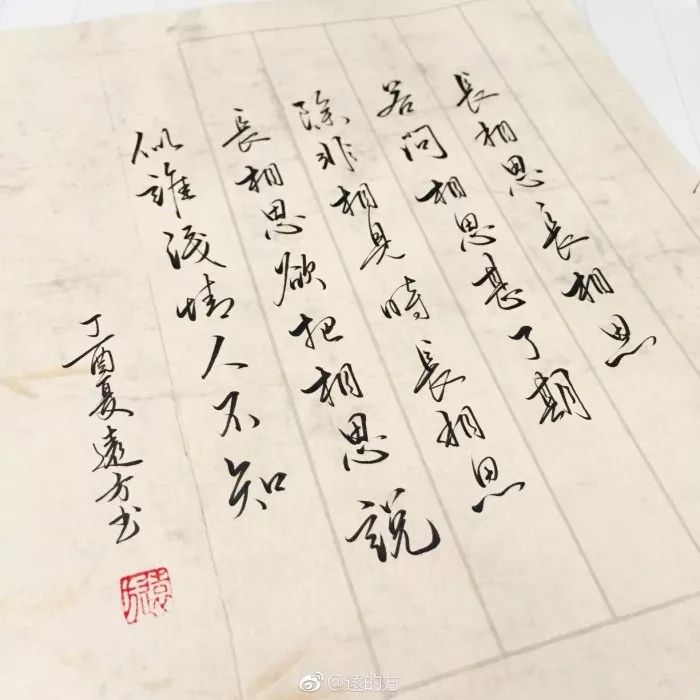 長相思長相思
若問相思甚了期
除非相見時長相思
長相思欲把相思説
似誰淺情人不知
丁酉夏遠方书
@遠的方